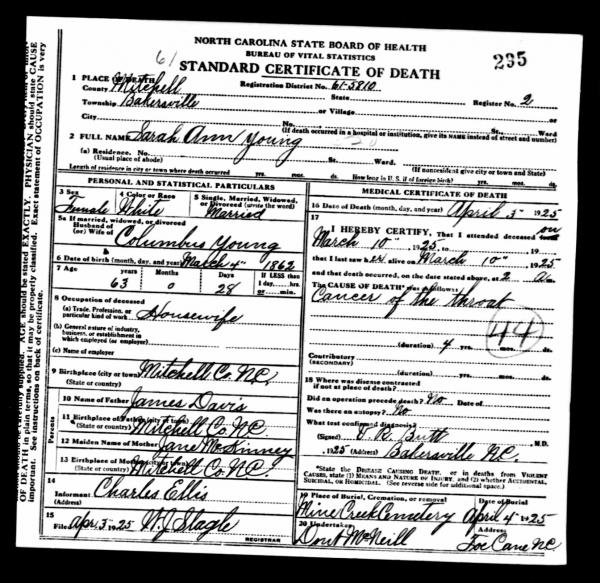 NORTH CAROLINA STATE BOARD OF HEALTH
BUREAU OF VITAL STATISTICS
61
STANDARD CERTIFICATE OF DEATH
235
1 PLACE OF DEATH
County Mitchell Registration District No. 61-5810
Township Bakersville State Register No. 2
or Village
City No. St., Ward
(If death occurred in a hospital or institution, give its NAME instead of street and number)
2 FULL NAME Sarah Ann Young
(a) Residence. No. St. Ward.
(Usual place of abode) (If nonresident give city or town and State)
Length of residence in city or town where death occurred yrs. mos. ds. How long in U. S. if of foreign birth? yrs. mos. ds.
PERSONAL AND STATISTICAL PARTICULARS
3 Sex 4 Color or Race 5 Single, Married, Widowed, or Divorced (write the word)
Female White Married
5a If married, widowed, or divorced
Husband of
(or) Wife of Columbus Young
6 Date of birth (month, day, and year) March 4" 1862
7 Age years Months Days If LESS than
1 day, hrs.
or min.
63 0 28
8 Occupation of deceased
(a) Trade, Profession, or
particular kind of work Housewife
(b) General nature of industry,
business, or establishment in
which employed (or employer)
(c) Name of employer
9 Birthplace (city or town) Mitchell Co NC.
(State or country)
Parents
10 Name of Father James Davis
11 Birthplace of Father (city or town)
(State or country) Mitchell Co NC.
12 Maiden Name of Mother Jane McKinney
13 Birthplace of Mother (city or town)
(State or country) Mitchell Co NC.
14
Informant Charles Ellis
(Address)
15
Filed Apr 3 1925 W. J. Slagle
REGISTRAR
MEDICAL CERTIFICATE OF DEATH
16 Date of Death (month, day, and year) April 3" 1925
17
I HEREBY CERTIFY, That I attended deceased from on
March 10" 1925 to 19
that I last saw her alive on March 10" 1925
and that death occurred, on the date stated above, at 2 a m.
The CAUSE OF DEATH* was as follows:
Cancer of the throat
44
(duration) 4 yrs. mos. ds.
Contributory
(SECONDARY)
(duration) yrs. mos. ds.
18 Where was disease contracted
if not at place of death?
Did an operation precede death? No Date of
Was there an autopsy? No
What test confirmed diagnosis?
(Signed) Butt M.D.
1925 (Address) Bakersville N.C.
*State the DISEASE CAUSING DEATH, or in deaths from VIOLENT
CAUSES, state (1) MEANS AND NATURE OF INJURY, and (2) whether ACCIDENTAL,
SUICIDAL, or HOMICIDAL. (See reverse side for additional space.)
19 Place of Burial, Cremation, or removal Date of Burial
Mine Creek Cemetery April 4" 1925
20 Undertaker Address
Dont McNeill Toe Cane NC.
AGE should be stated EXACTLY. PHYSICIAN should state CAUSE
OF DEATH in plain terms, so that it may be properly classified. Exact statement of OCCUPATION is very
important. See instructions on back of certificate.